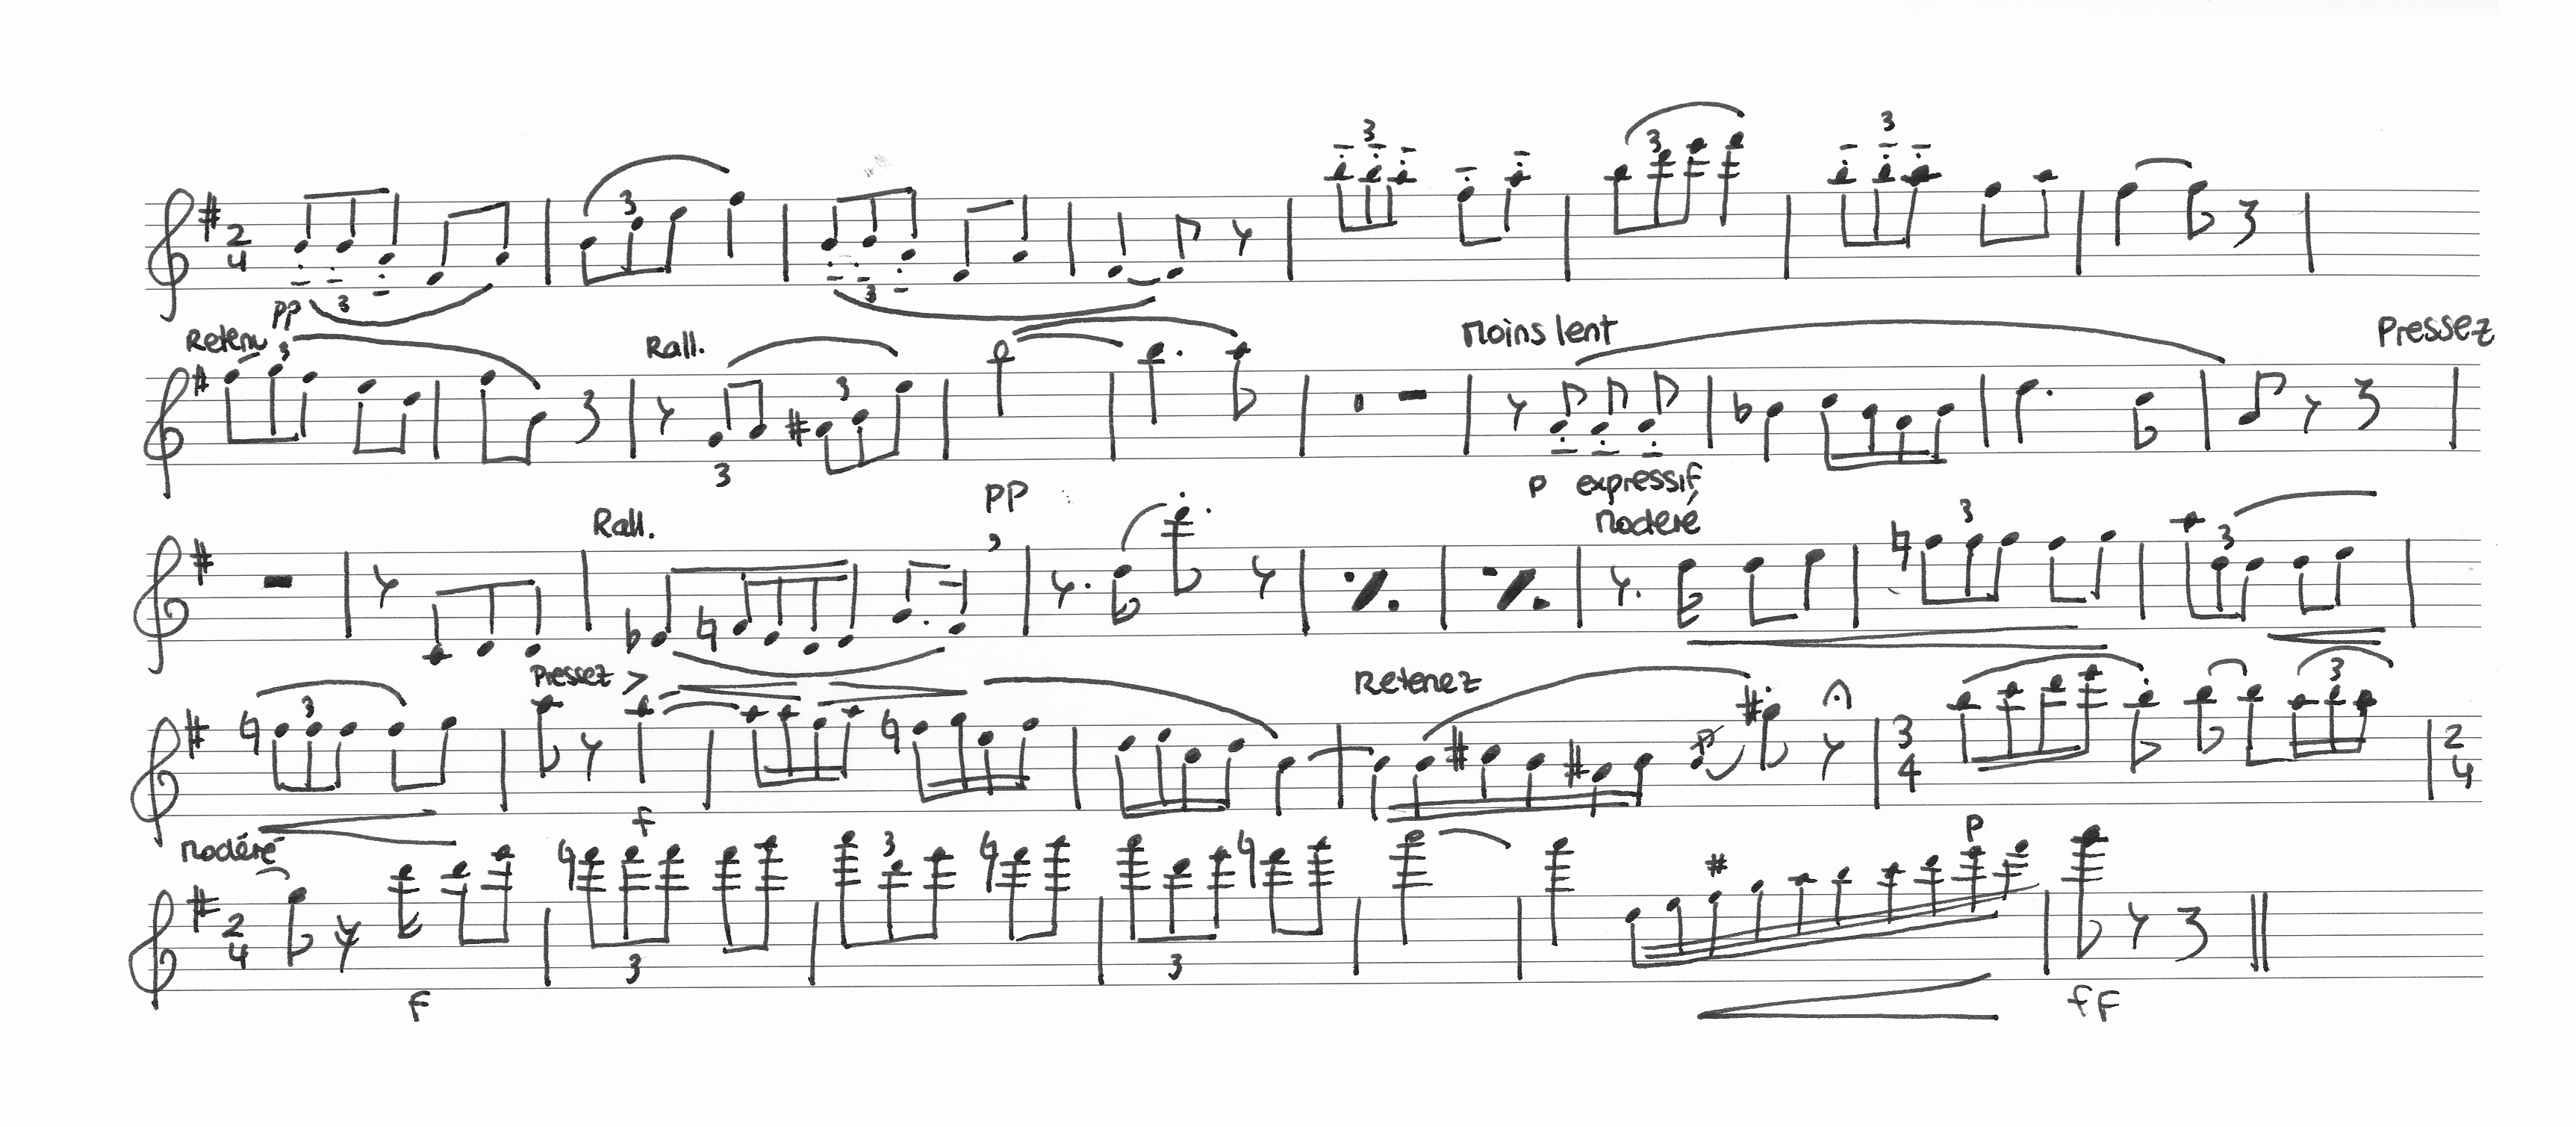 3 3 3 3 3
2 4
pp 3 3
Retenu 3 Rall. 3 Moins lent Pressez
3
p expressif
Rall. pp Modéré 3 3
3 Pressez Retenez 3
3 4 2 4
f
Modéré 3 p
2 4
3 3
f ff